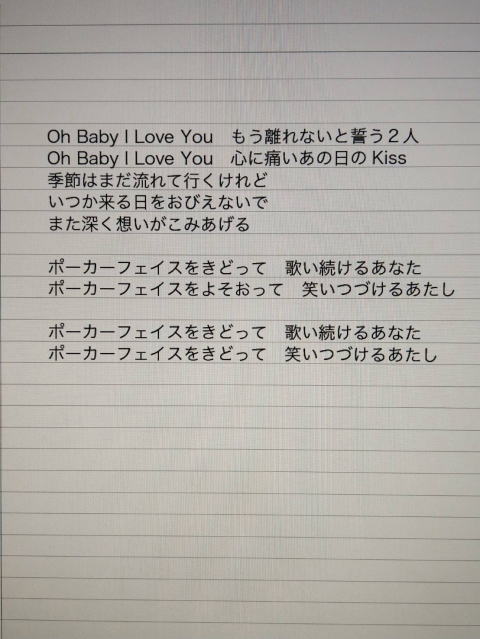 Oh Baby I Love You　もう離れないと誓う２人
Oh Baby I Love You　心に痛いあの日の Kiss
季節はまだ流れて行くけれど
いつか来る日をおびえないで
また深く想いがこみあげる
ポーカーフェイスをきどって　歌い続けるあなた
ポーカーフェイスをよそおって　笑いつづけるあたし
ポーカーフェイスをきどって　歌い続けるあなた
ポーカーフェイスをきどって　笑いつづけるあたし